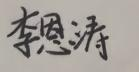 李恩涛